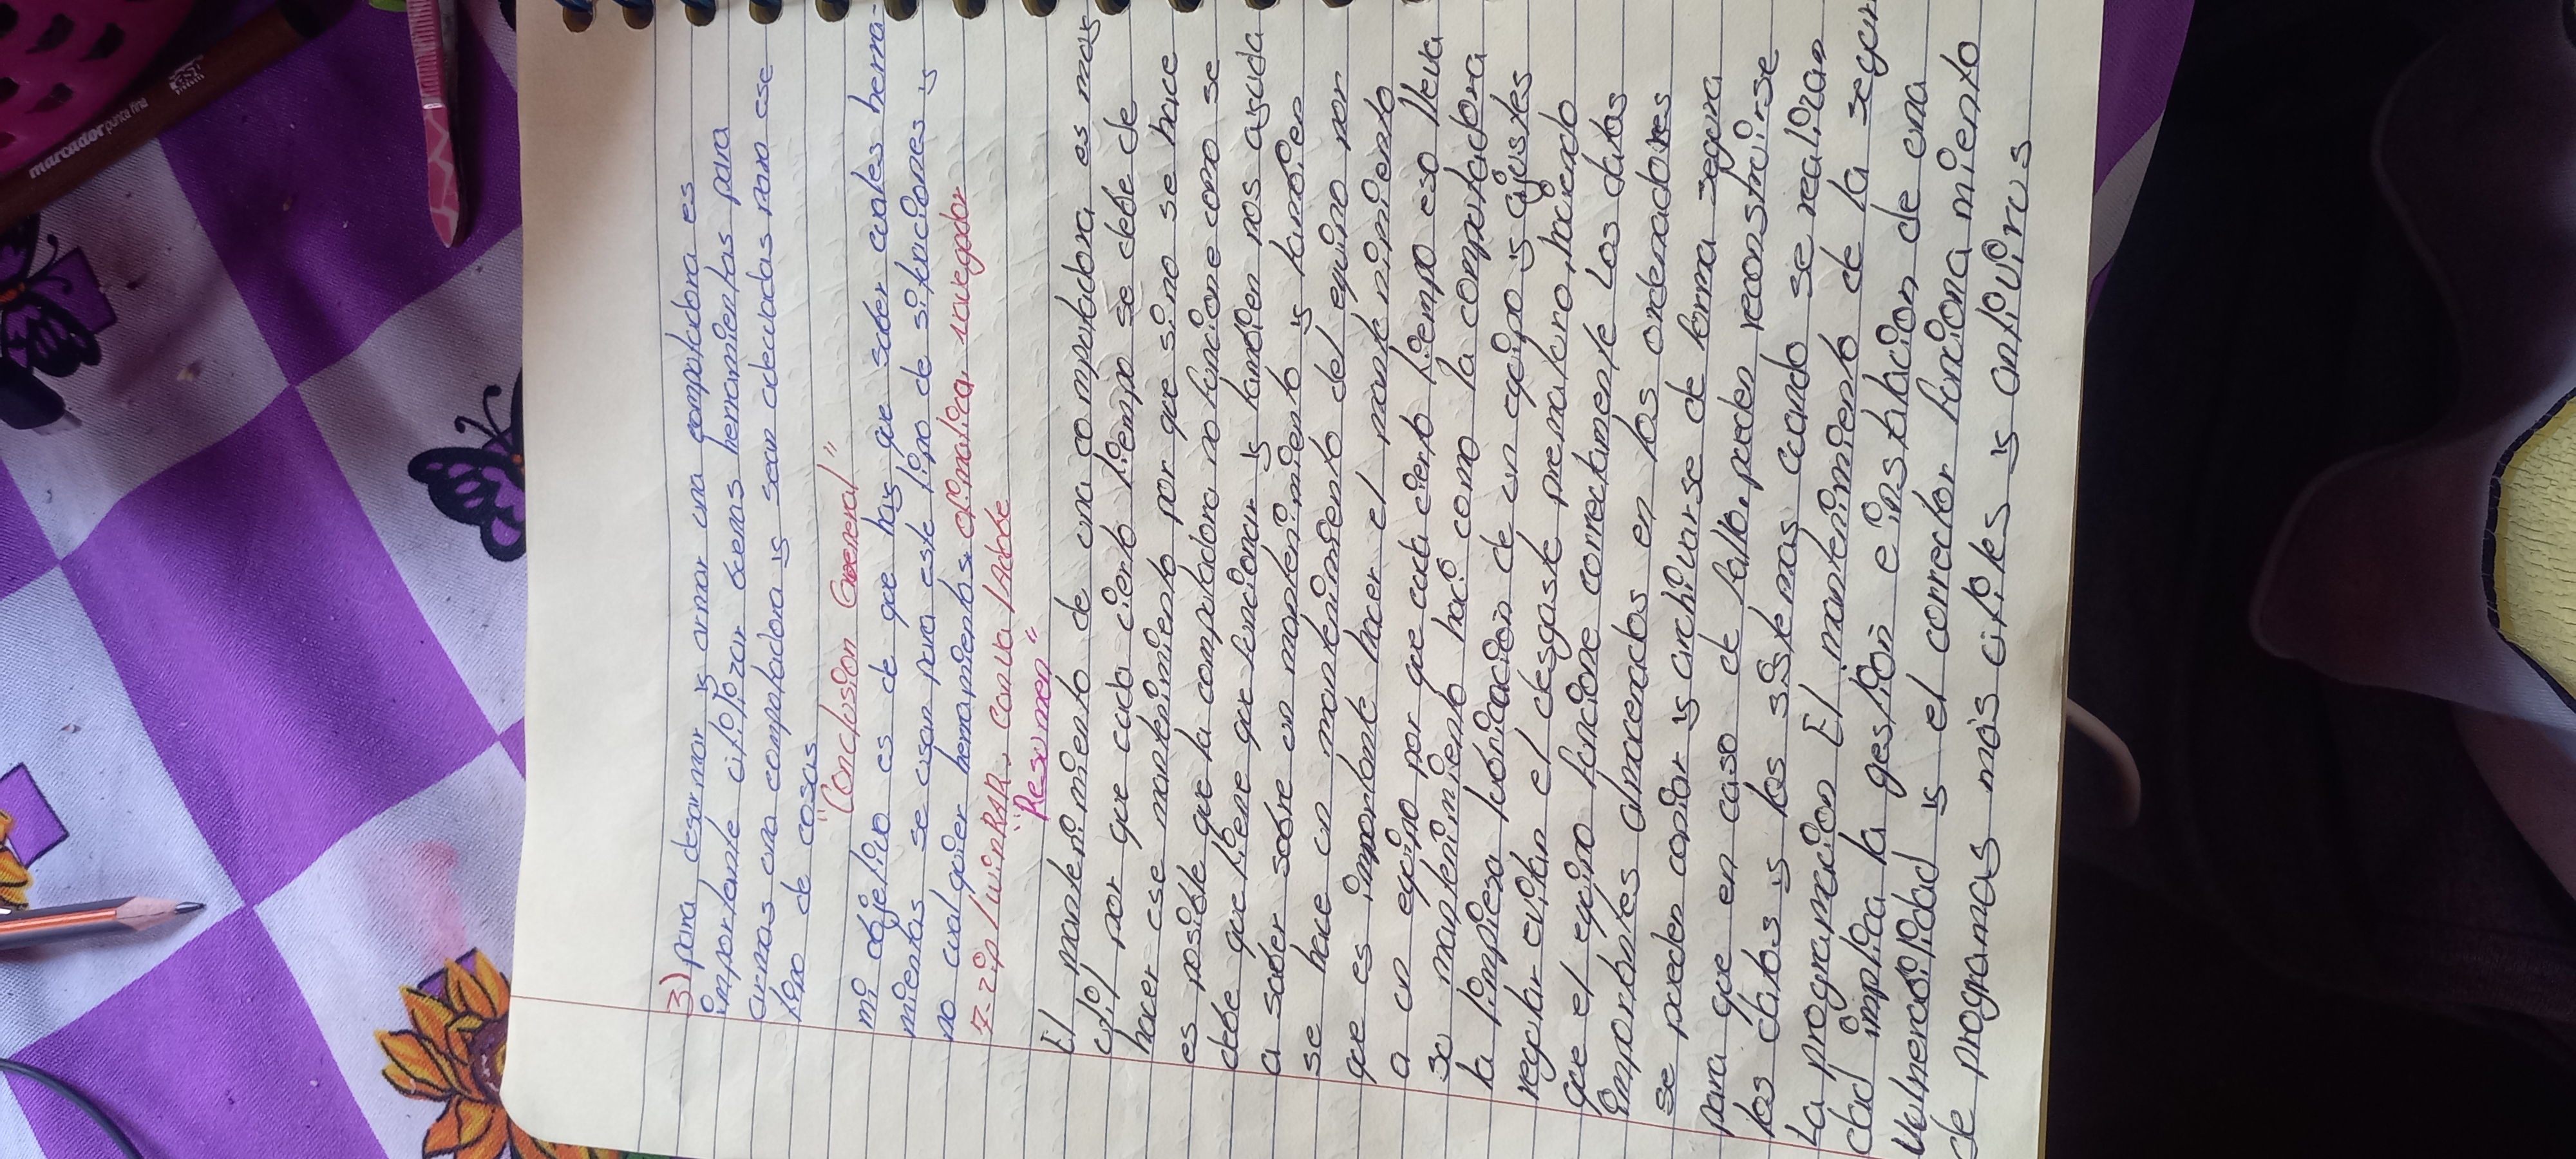 3) para desarmar y armar una computadora es
importante utilizar buenas herramientas para
armas una computadora y sean adecuadas para ese
tipo de cosas
"Conclusion General"
mi objetivo es de que hay que saber cuales herra-
mientas se usan para este tipo de situaciones y
no cualquier herramientas. ofimatica navegador
7-zip/winRAR, canva/Adobe
"Resumen"
El mantenimiento de una computadora es mas
util por que cada cierto tiempo se debe de
hacer ese mantenimiento por que si no se hace
es posible que la computadora no funcione como se
debe que tiene que funcionar y tambien nos ayuda
a saber sobre un mantenimiento y tambien
se hace un mantenimiento del equipo por
que es importante hacer el mantenimiento
a un equipo por que cada cierto tiempo eso lleva
su mantenimiento haci como la computadora
la limpieza lubricación de un equipo y ajustes
regular evitan el desgaste prematuro, haciendo
que el equipo funcione correctamente Los datos
importantes almacenados en los ordenadores
se pueden copiar y archivarse de forma segura
para que en caso de fallo, pueden reconstruirse
los datos y los sistemas cuando se realizan
La programacion El mantenimiento de la segur
dad implica la gestión e instalacion de una
Vulnerabilidad y el corrector funciona miento
de programas más utiles y antivirus
marcador punta fina